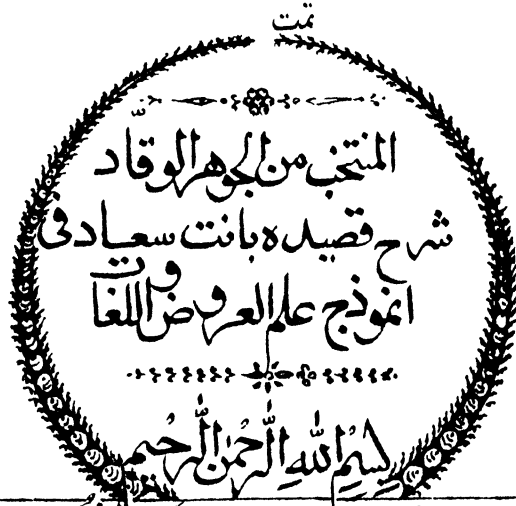 تمت
المنتخب من الجوهر الوقّاد
شرح قصيده بانت سعاد فى
انموذج علم العروض و اللغات
بِسْمِ اللهِ الرَّحْمٰنِ الرَّحِيمِ